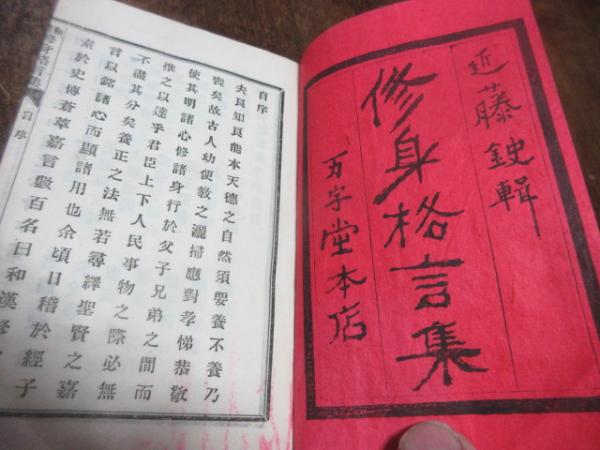 近藤鈂輯
修身格言集
万字堂本店
自序
夫良知良能本天德之自然須要養不養乃
喪矣故古人幼使教之灑掃應對孝悌恭敬
使其明諸心修諸身行於父子兄弟之間而
推之以達乎君臣上下人民事物之際必無
不盡其分矣養正之法無若尋繹聖賢之嘉
言以銘諸心而顯諸用也余頃日稽於經子
索於史傳薈萃嘉言數百名曰和漢修
身格言集
自序